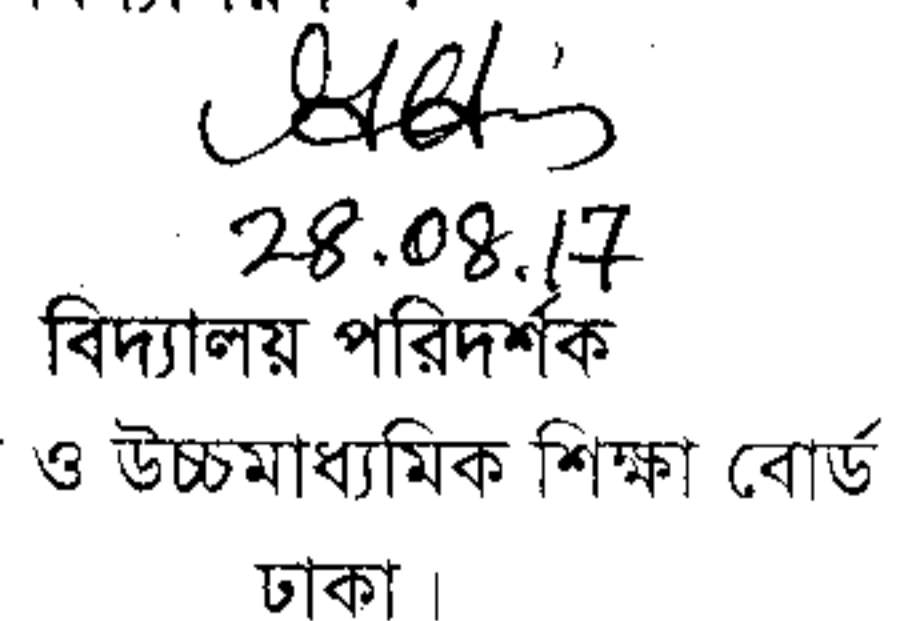 28.08.17
বিদ্যালয় পরিদর্শক
ও উচ্চমাধ্যমিক শিক্ষা বোর্ড
ঢাকা।